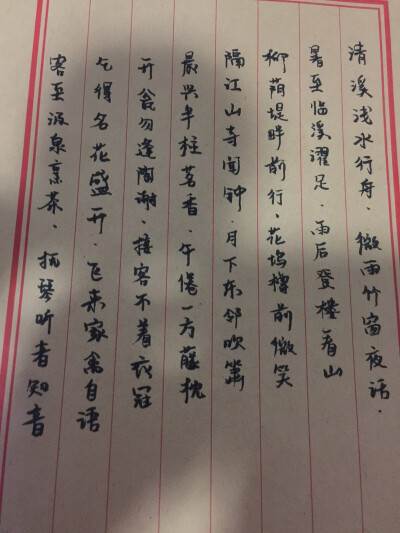 清溪浅水行舟·微雨竹窗夜话·
暑至临溪濯足·雨后登楼看山
柳荫堤畔前行·花坞樽前微笑
隔江山寺闻钟·月下东邻吹箫
晨兴半柱茗香·午倦一方藤枕
开瓮勿逢陶谢·接客不着衣冠
乞得名花盛开·飞来家禽自语
客至汲泉烹茶·抚琴听者知音